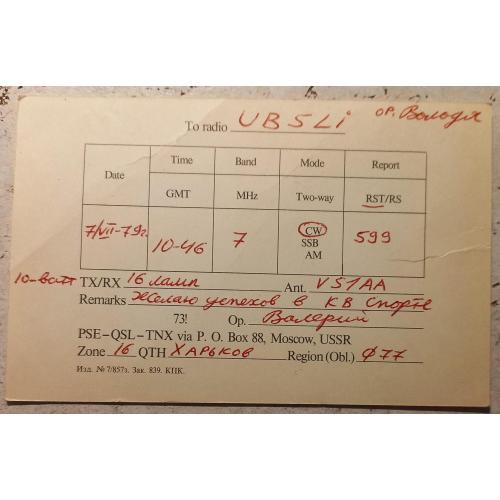 To radio UB5Li ор. Володя
Date Time GMT Band MHz Mode Two-way Report RST/RS
7/VII-79г. 10-46 7 CW SSB AM 599
10-ватт TX/RX 16 ламп Ant. VS1AA
Remarks Желаю успехов в КВ спорте
73! Op. Валерий
PSE–QSL–TNX via P. O. Box 88, Moscow, USSR
Zone 16 QTH Харьков Region (Obl.) Ø77
Изд. № 7/857з. Зак. 839. КПК.